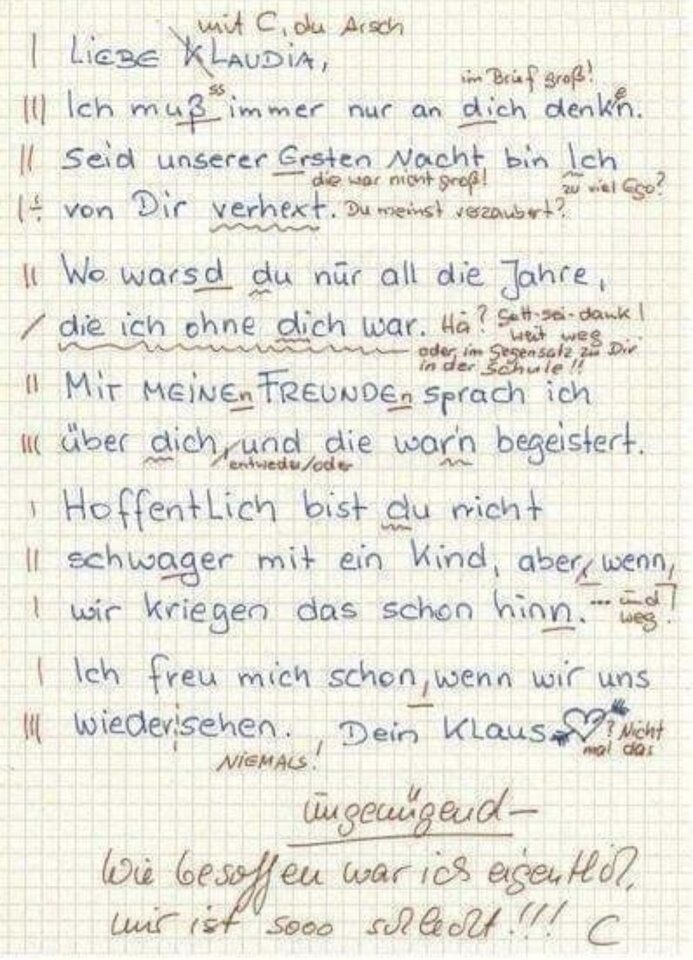 mit C, du Arsch
LIEBE KLAUDIA,
im Brief groß!
Ich muß ss immer nur an dich denk'n. e
Seid unserer Ersten Nacht bin Ich
die war nicht groß!
zu viel Ego?
von Dir verhext. Du meinst verzaubert?
Wo warsd du nur all die Jahre,
die ich ohne dich war. Hä? Gott-sei-dank!
weit weg
oder im Gegensatz zu Dir
in der Schule!!
MIT MEINEn FREUNDEn sprach ich
über dich, und die war'n begeistert.
entweder/oder
HoffentLich bist du nicht
schwager mit ein Kind, aber, wenn,
wir kriegen das schon hinn. ... und
weg!
Ich freu mich schon, wenn wir uns
wiedersehen. Dein Klaus ? Nicht
mal das
NIEMALS!
ungenügend –
Wie besoffen war ich eigentlich,
mir ist sooo schlecht!!! C